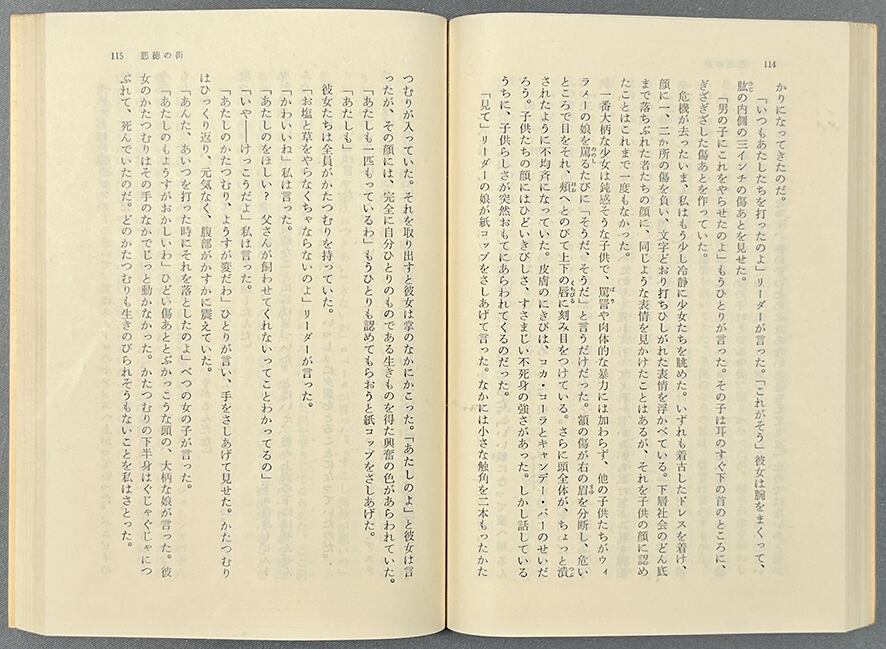 114
かりになってきたのだ。
「いつもあたしたちを打ったのよ」リーダーが言った。「これがそう」彼女は腕をまくって、
肱の内側の三インチの傷あとを見せた。
「男の子にこれをやらせたのよ」もうひとりが言った。その子は耳のすぐ下の首のところに、
ぎざぎざした傷あとを作っていた。
危機が去ったいま、私はもう少し冷静に少女たちを眺めた。いずれも着古したドレスを着け、
顔に一、二か所の傷を負い、文字どおり打ちひしがれた表情を浮かべている。下層社会のどん底
まで落ちぶれた者たちの顔に、同じような表情を見かけたことはあるが、それを子供の顔に認め
たことはこれまで一度もなかった。
一番大柄な少女は鈍感そうな子供で、罵詈や肉体的な暴力には加わらず、他の子供たちがウィ
ラメーの娘を罵るたびに「そうだ、そうだ」と言うだけだった。額の傷が右の眉を分断し、危い
ところで目をそれ、頬へとのびて上下の唇に刻み目をつけている。さらに頭全体が、ちょっと潰
されたように不均斉になっていた。皮膚のにきびは、コカ・コーラとキャンデー・バーのせいだ
ろう。子供たちの顔にはひどいきびしさ、すさまじい不死身の強さがあった。しかし話している
うちに、子供らしさが突然おもてにあらわれてくるのだった。
「見て」リーダーの娘が紙コップをさしあげて言った。なかには小さな触角を二本もったかた
115 悪徳の街
つむりが入っていた。それを取り出すと彼女は掌のなかにかこった。「あたしのよ」と彼女は言
ったが、その顔には、完全に自分ひとりのものである生きものを得た興奮の色があらわれていた。
「あたしも一匹もっているわ」もうひとりも認めてもらおうと紙コップをさしあげた。
「あたしも」
彼女たちは全員がかたつむりを持っていた。
「お塩と草をやらなくちゃならないのよ」リーダーが言った。
「かわいいね」私は言った。
「あたしのをほしい? 父さんが飼わせてくれないってことわかってるの」
「いや――けっこうだよ」私は言った。
「あたしのかたつむり、ようすが変だわ」ひとりが言い、手をさしあげて見せた。かたつむり
はひっくり返り、元気なく、腹部がかすかに震えていた。
「あんた、あいつを打った時にそれを落としたのよ」べつの女の子が言った。
「あたしのもようすがおかしいわ」ひどい傷あととぶかっこうな頭の、大柄な娘が言った。彼
女のかたつむりはその手のなかでじっと動かなかった。かたつむりの下半身はぐじゃぐじゃにつ
ぶれて、死んでいたのだ。どのかたつむりも生きのびられそうもないことを私はさとった。